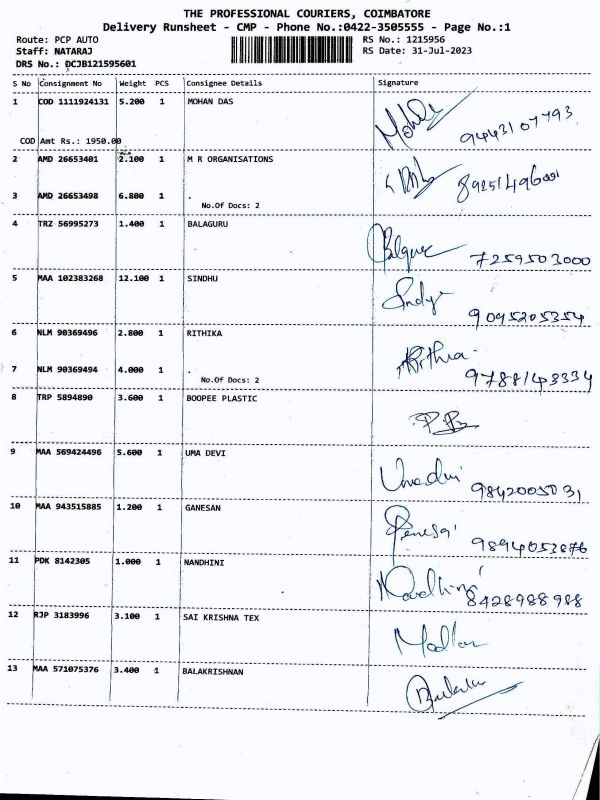 THE PROFESSIONAL COURIERS, COIMBATORE
Delivery Runsheet - CMP - Phone No.:0422-3505555 - Page No.:1
Route: PCP AUTO RS No.: 1215956
Staff: NATARAJ RS Date: 31-Jul-2023
DRS No.: DCJB121595601
S No Consignment No Weight PCS Consignee Details Signature
1 COD 1111924131 5.200 1 MOHAN DAS
9443107793
COD Amt Rs.: 1950.00
2 AMD 26653401 2.100 1 M R ORGANISATIONS
3 AMD 26653498 6.800 1
No.Of Docs: 2
4 TRZ 56995273 1.400 1 BALAGURU
7259503000
5 MAA 102383268 12.100 1 SINDHU
9095205354
6 NLM 90369496 2.800 1 RITHIKA
7 NLM 90369494 4.000 1
9788143334
No.Of Docs: 2
8 TRP 5894890 3.600 1 BOOPEE PLASTIC
9 MAA 569424496 5.600 1 UMA DEVI
Umadevi 9842005031
10 MAA 943515885 1.200 1 GANESAN
9894053876
11 PDK 8142305 1.000 1 NANDHINI
Nandhini
8428988988
12 RJP 3183996 3.100 1 SAI KRISHNA TEX
13 MAA 571075376 3.400 1 BALAKRISHNAN